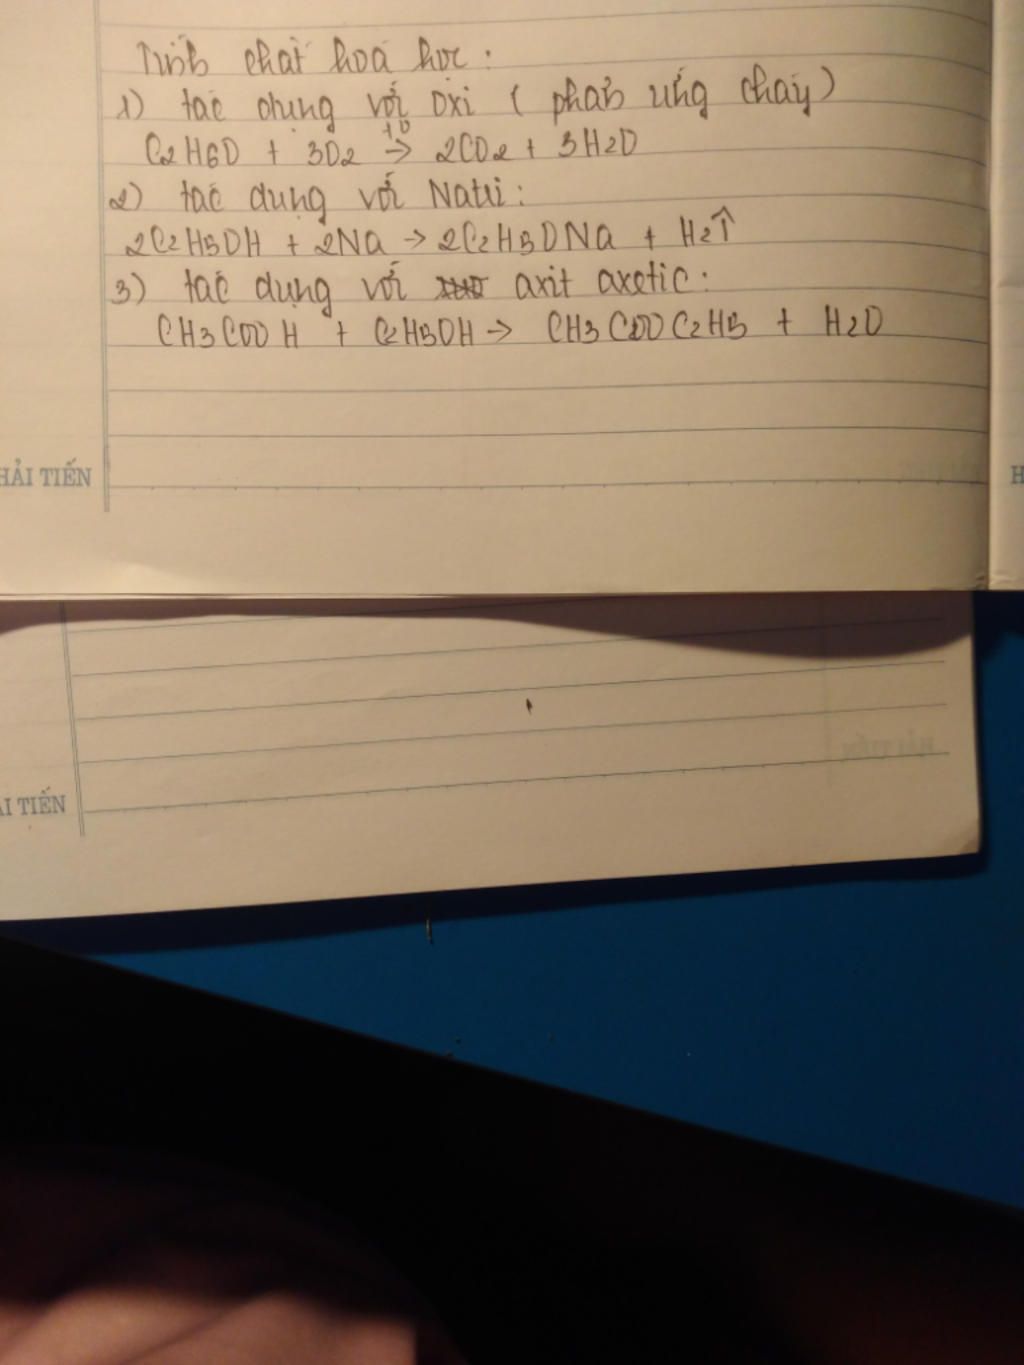 Tính chất hoá học:
1) tác dụng với oxi ( phản ứng cháy)
C2H6O + 3O2 →tº 2CO2 + 3H2O
2) tác dụng với Natri:
2C2H5OH + 2Na → 2C2H5ONa + H2↑
3) tác dụng với axit axetic:
CH3COOH + C2H5OH → CH3COOC2H5 + H2O
HẢI TIẾN
H
HẢI TIẾN
ẢI TIẾN